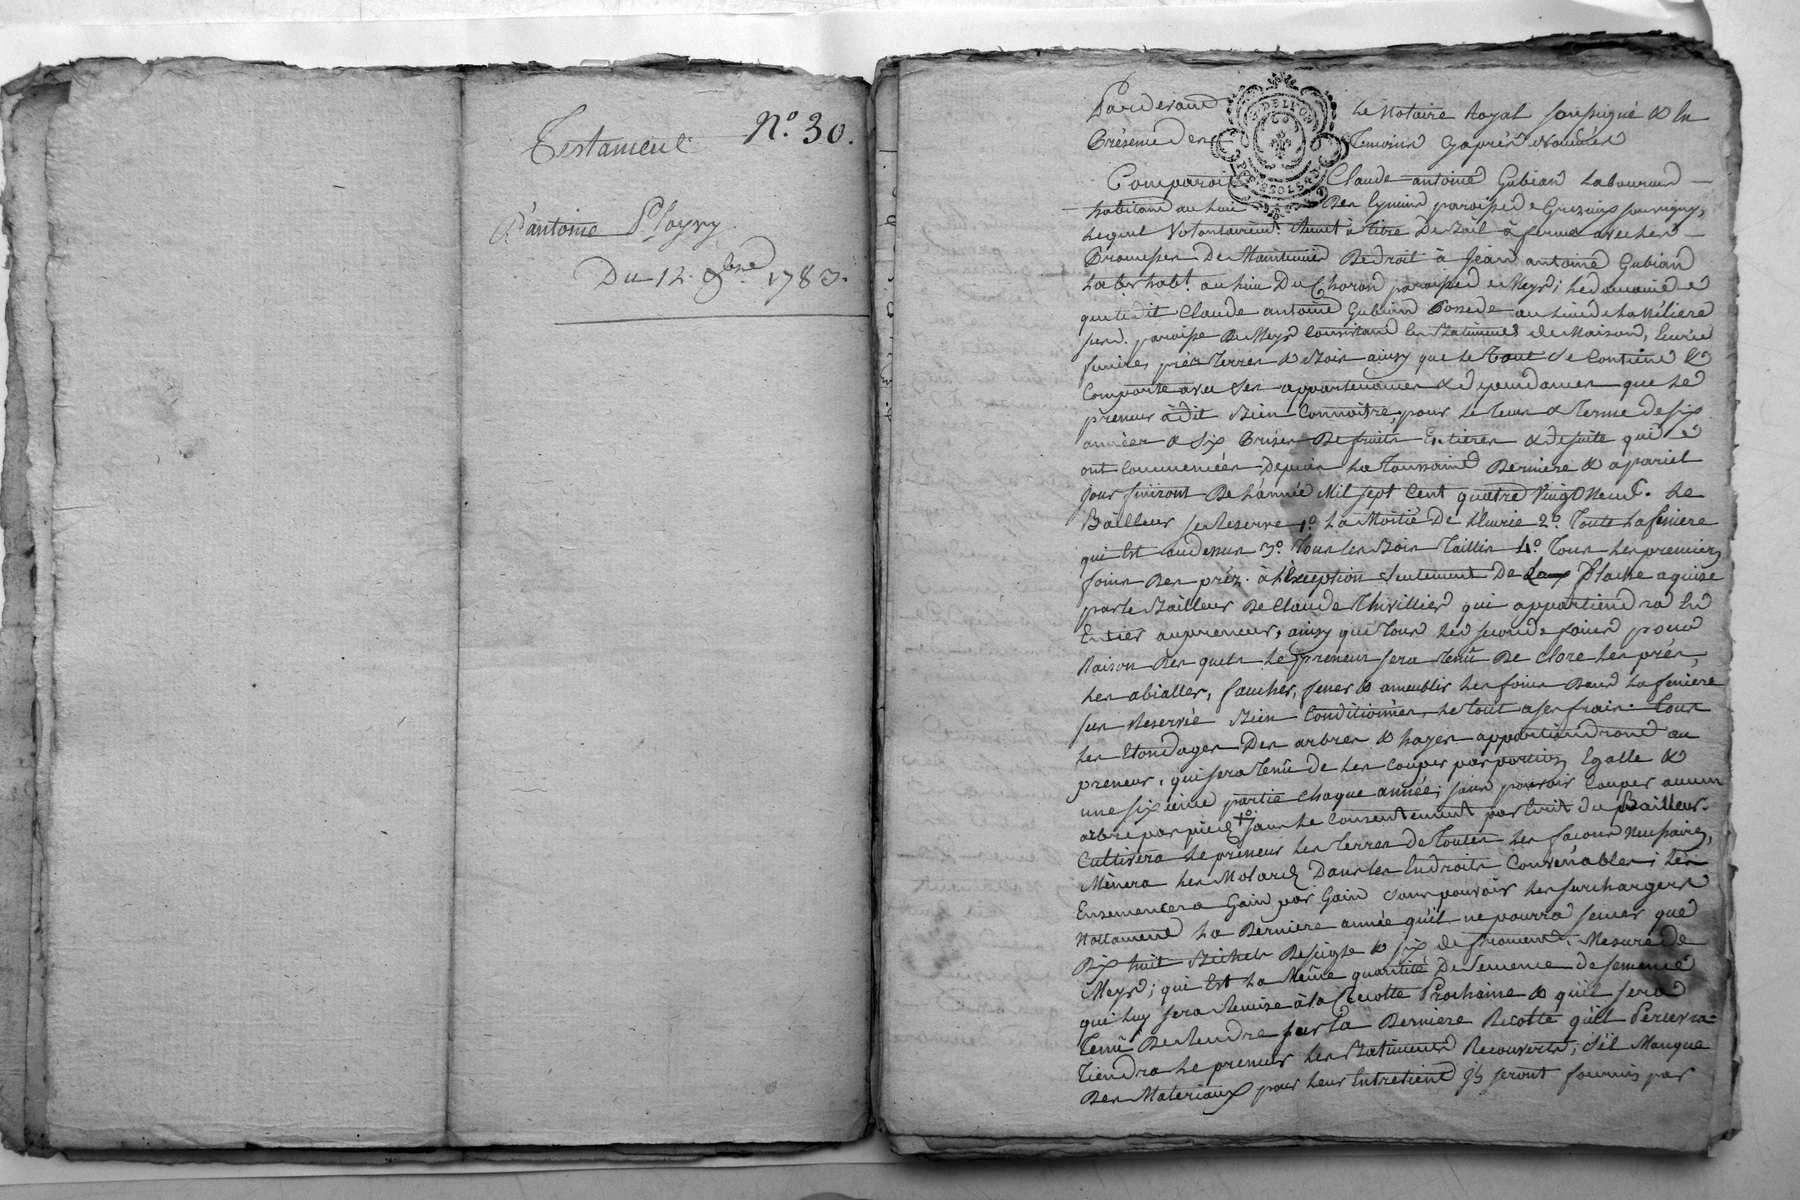 Testament N.o 30.
D'antoine
Du 12. 9bre 1783.
Pardevant le Notaire Royal soussigné & En
Présence des Temoins Cyaprès Nommés
G DE LYON
Comparoit Claude antoine Gubian Laboureur
habitant au lieu Des paroisse de
Lequel Volontairemt. Remet à titre De Bail à ferme avec les
Promesses De Maintenir De droit à Jean antoine Gubian
Labr. habt. au lieu Du Choron paroisse de Meys; le domaine
que ledit Claude antoine Gubian Possede au lieu de la Méliere
susd. paroisse De Meys Consistant En Batiments de Maison, Ecurie
feniere, prés Terres & Bois ainsy que le Tout Se Contient &
Comporte avec Ses appartenances & dependances que le
preneur à dit Bien Connoitre, pour le Tems & Terme de six
années & Six Prises De fruits Entieres & de suite qui
ont Commencées Depuis La Toussaint Derniere & a pareil
Jour finiront De L'année Mil sept Cent quatre Vingt Neuf. Le
Bailleur se Reserve 1.o La Moitié De L'Ecurie 2.o Toute La feniere
qui Est audessus 3.o Tous les Bois Taillis 4.o Tous les premiers
foins Des préz. à L'Exception Seulement De La Plache aquise
par le Bailleur De Claude Thivillier qui appartiendra En
Entier au preneur, ainsy que Tous les seconds foins pour
Raison Des quels Le preneur sera Tenû De Clore les prés,
les abialler, faucher, fener & ameubler les foins Dans La feniere
sus Reservée Bien Conditionnés, Le Tout a ses frais. Tous
les Etondages Des arbres & hayes appartiendront au
preneur, qui sera Tenû de les Couper par portion Egalle &
une sixieme partie Chaque année; sans pouvoir Couper aucun
arbre par pied sans Le Consentement par Ecrit du Bailleur.
Cultivera Le preneur les Terres de Toutes les façons Necessaires,
Mènera les Molards Dans les Endroits Convénables; les
Ensemencera Gain par Gain Sans pouvoir les surcharger
Nottament La Derniere année qu'il ne pourra semer que
Dix huit Bichets De seigle & six de froment. Mesure de
Meys; qui Est La Même quantité De Semence de semence
qui Luy sera Remise à la Recolte Prochaine & qu'il sera
Tenû De Rendre sur La Derniere Recolte qu'il Percevra
Tiendra Le preneur les Batiments Recouverts; S'il Manque
Des Materiaux pour leur Entretient Ils seront fournis par